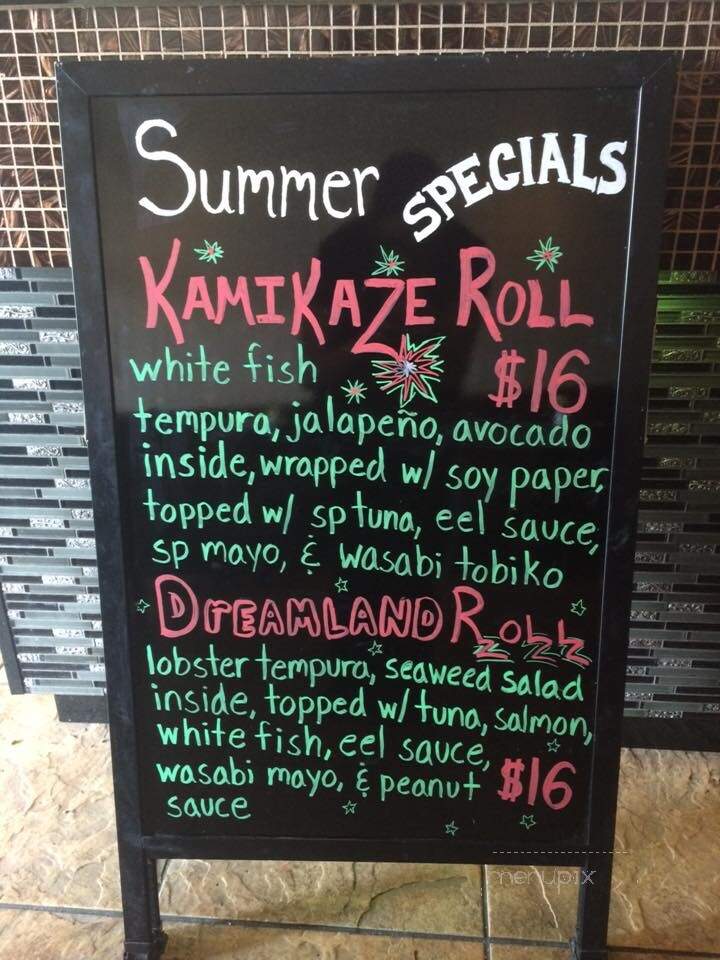 Summer SPECIALS
KAMIKAZE ROLL
white fish $16
tempura, jalapeño, avocado
inside, wrapped w/ soy paper,
topped w/ sp tuna, eel sauce,
sp mayo, & wasabi tobiko
DREAMLAND ROLL
lobster tempura, seaweed salad
inside, topped w/ tuna, salmon,
white fish, eel sauce,
wasabi mayo, & peanut $16
sauce
menupix